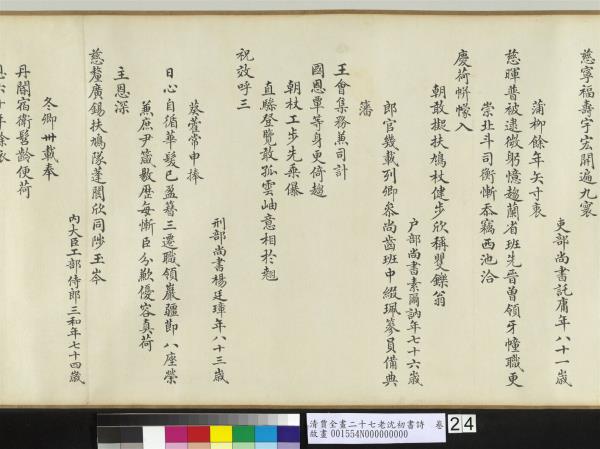 慈寧福壽宇宏開遍九寰
吏部尚書託庸年八十一歲
蒲柳餘年矢寸衷
慈暉普被逮微躬憶趨蘭省班先晉曾領牙幢職更
崇北斗司衡慚忝竊西池洽
慶荷帡幪入
朝敢擬扶鳩杖健步欣稱矍鑠翁
戶部尚書素爾訥年七十六歲
郎官幾載列卿叅尚齒班中綴珮篸員備典
藩
王會集務兼司計
國恩單等身更倚趨
朝杖工步先乘儤
直縢登覽敢孤雲岫意相於翹
祝效呼三
刑部尚書楊廷璋年八十三歲
葵藿常申捧
日心自循華髮已盈簪三遷職領嚴疆節八座榮
兼庶尹箴敭歷每慚臣分歉優容真荷
主恩深
慈釐廣錫扶鳩隊蓬閬欣同陟玉岑
內大臣工部侍郎三和年七十四歲
冬卿卅載奉
丹闈宿衛髫齡便荷
清 賈全畫二十七老沈初書詩 卷
故畫 001554N000000000
24